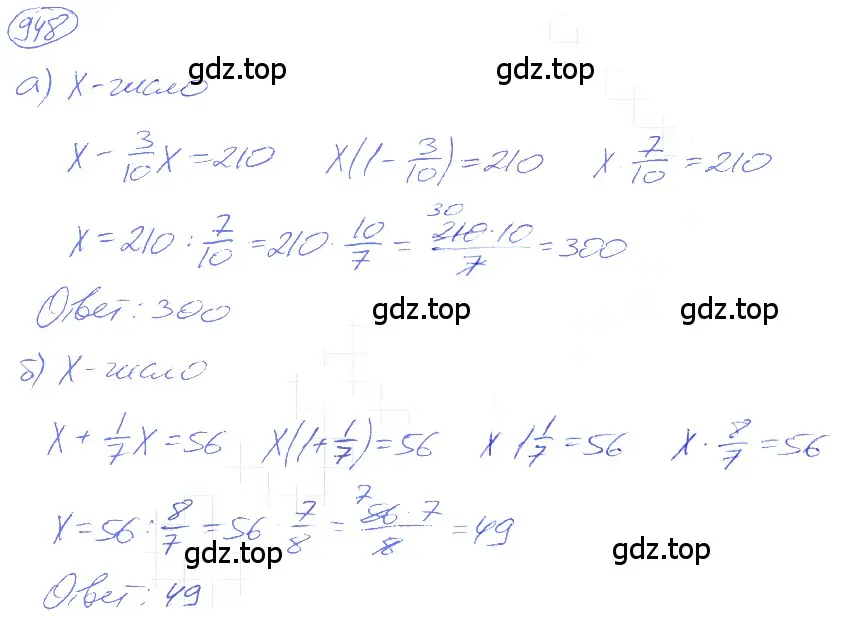 948
gdz.top gdz.top
а) x - число
x - 3/10 x = 210 x(1 - 3/10) = 210 x · 7/10 = 210
x = 210 : 7/10 = 210 · 10/7 = 30 210 · 10 / 7 = 300
Ответ: 300
gdz.top gdz.top
б) x - число
x + 1/7 x = 56 x(1 + 1/7) = 56 x 1 1/7 = 56 x · 8/7 = 56
x = 56 : 8/7 = 56 · 7/8 = 7 56 · 7 / 8 = 49
gdz.top gdz.top
Ответ: 49